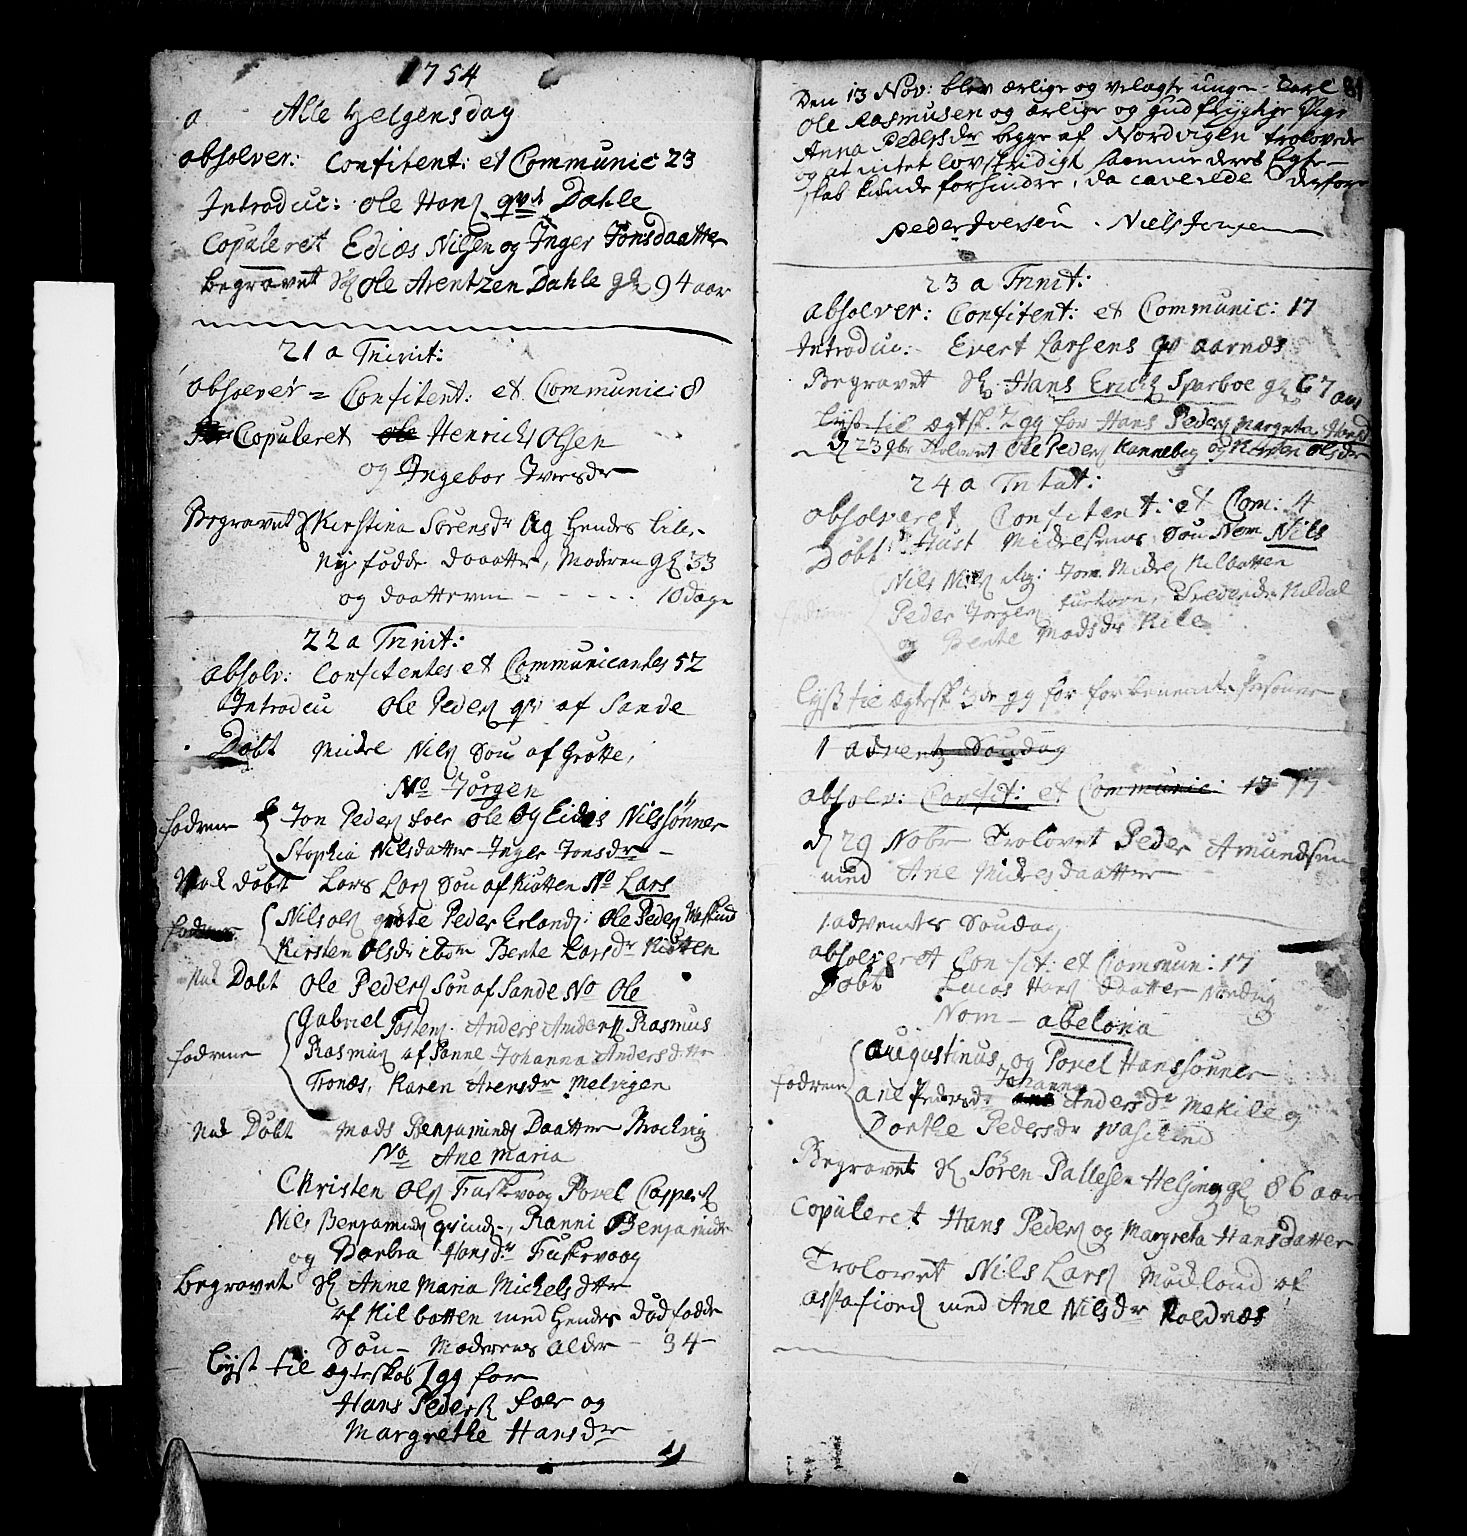 1754
a Alle Helgensdag
absolver: Confitent: et Communic 23
Introduc: Ole Hans qvi Dahle
Copuleret Edias Nilsen og Inger Jonsdaatter
begravet Sl Ole Arentzen Dahle gl 94 aar
21 a Trinit:
absolver = Confitent: et Communic: 8
Copuleret Henrich Olsen
og Ingebor Iversdr
Begravet Kirstina Sørensdr og hendes lille
ny fødde daaatter, Moderen gl 33
og daatteren - - - - - 10 dage
22 a Trinit:
absolv: Confitentes et Communicantes 52
Introdcu Ole Peders qvi af Sande
Døbt Michel Nils Søn af Grøtte,
No Jørgen
fadrene Jon Peders foer Ole og Eidis Nilssønner
Stophia Nilsdatter Inger Jonsdr
Nok døbt Lars Lars Søn af Kiøtten No Lars
fadrene Nils Ols grøte Peder Erlands: Ole Peders
Kirsten Olsdr ibm Bente Larsdr Kiøtten
Nok Døbt Ole Peders Søn af Sande No Ole
Gabriel Anders Anders Rasmus
fadrene Rasmus af Sanne Johanna Andersdtr
Tronæs, Karen Arensdr Melvigen
Nok Døbt Mads Benjamins Daatter Brochvig
No Ane Maria
Christen Ols Fuskevaag Povel Caspers
Nils Benjamins Ranni Benjamindr
og Barbra Hansdr Fuskevaag
begravet Sl Anne Maria Michelsdttr
af Kilbotten med hendes dødfødde
Søn - Moderens alder - 34 -
lyst til ægteskab 1 gg for
Hans Peders foer og
Margrethe Hansdr
81
Den 13 Nov: blev ærlige og velagte unge Carl
Ole Rasmusen og ærlige og gudfrygtige Pige
Anna Pedersdr begge af Nordvigen trolovede
og at intet lovstridigt samme deres Egte-
skab kunde forhindre, da caverede derfore
Peder Iversen . Niels Jensen
23 a Trinit:
absolver: Confitent: et Communic: 17
Introduc: Evert Larsens qv aarnæs
Begravet Sl Hans Erichs Sparboe gl 67 aar
Lyst til ægtsk 2 gg for Hans Peders Margreta Hansd
d 23 9br trolovet Ole Peders Kannebog og Kirsten Olsdr
24 a Trinitat:
absolveret Confitent: et Com: 4
Døbt Michelsens Søn Nom Nils
Nils Nils Jon Michels Kilbotten
fadr Peder Jørgens Kildal
og Bente Madsdr Kile
lyst til ægtesk 3de gg for forbenevnte Personer
1 advents Søndag
absolv: Confit: et Communic: 17
d 29 Nobr Trolovet Peder Amundsen
med Ane Michelsdaatter
1. advents Søndag
absolveret Confit: et Commun: 17
Døbt Lucas Hans Daatter
Nom - abelona
augustinus og Povel Hanssønner
fadrene ane Pedersdr Johanna Andersdr Mekile og
Dorthe Pedersdr
Begravet Sl Søren Pallesen Helsing gl 86 aar
Copuleret Hans Peders og Margreta Hansdatter
Trolovet Nils Lars Madland af
med Ane Nilsdr Roldnæs